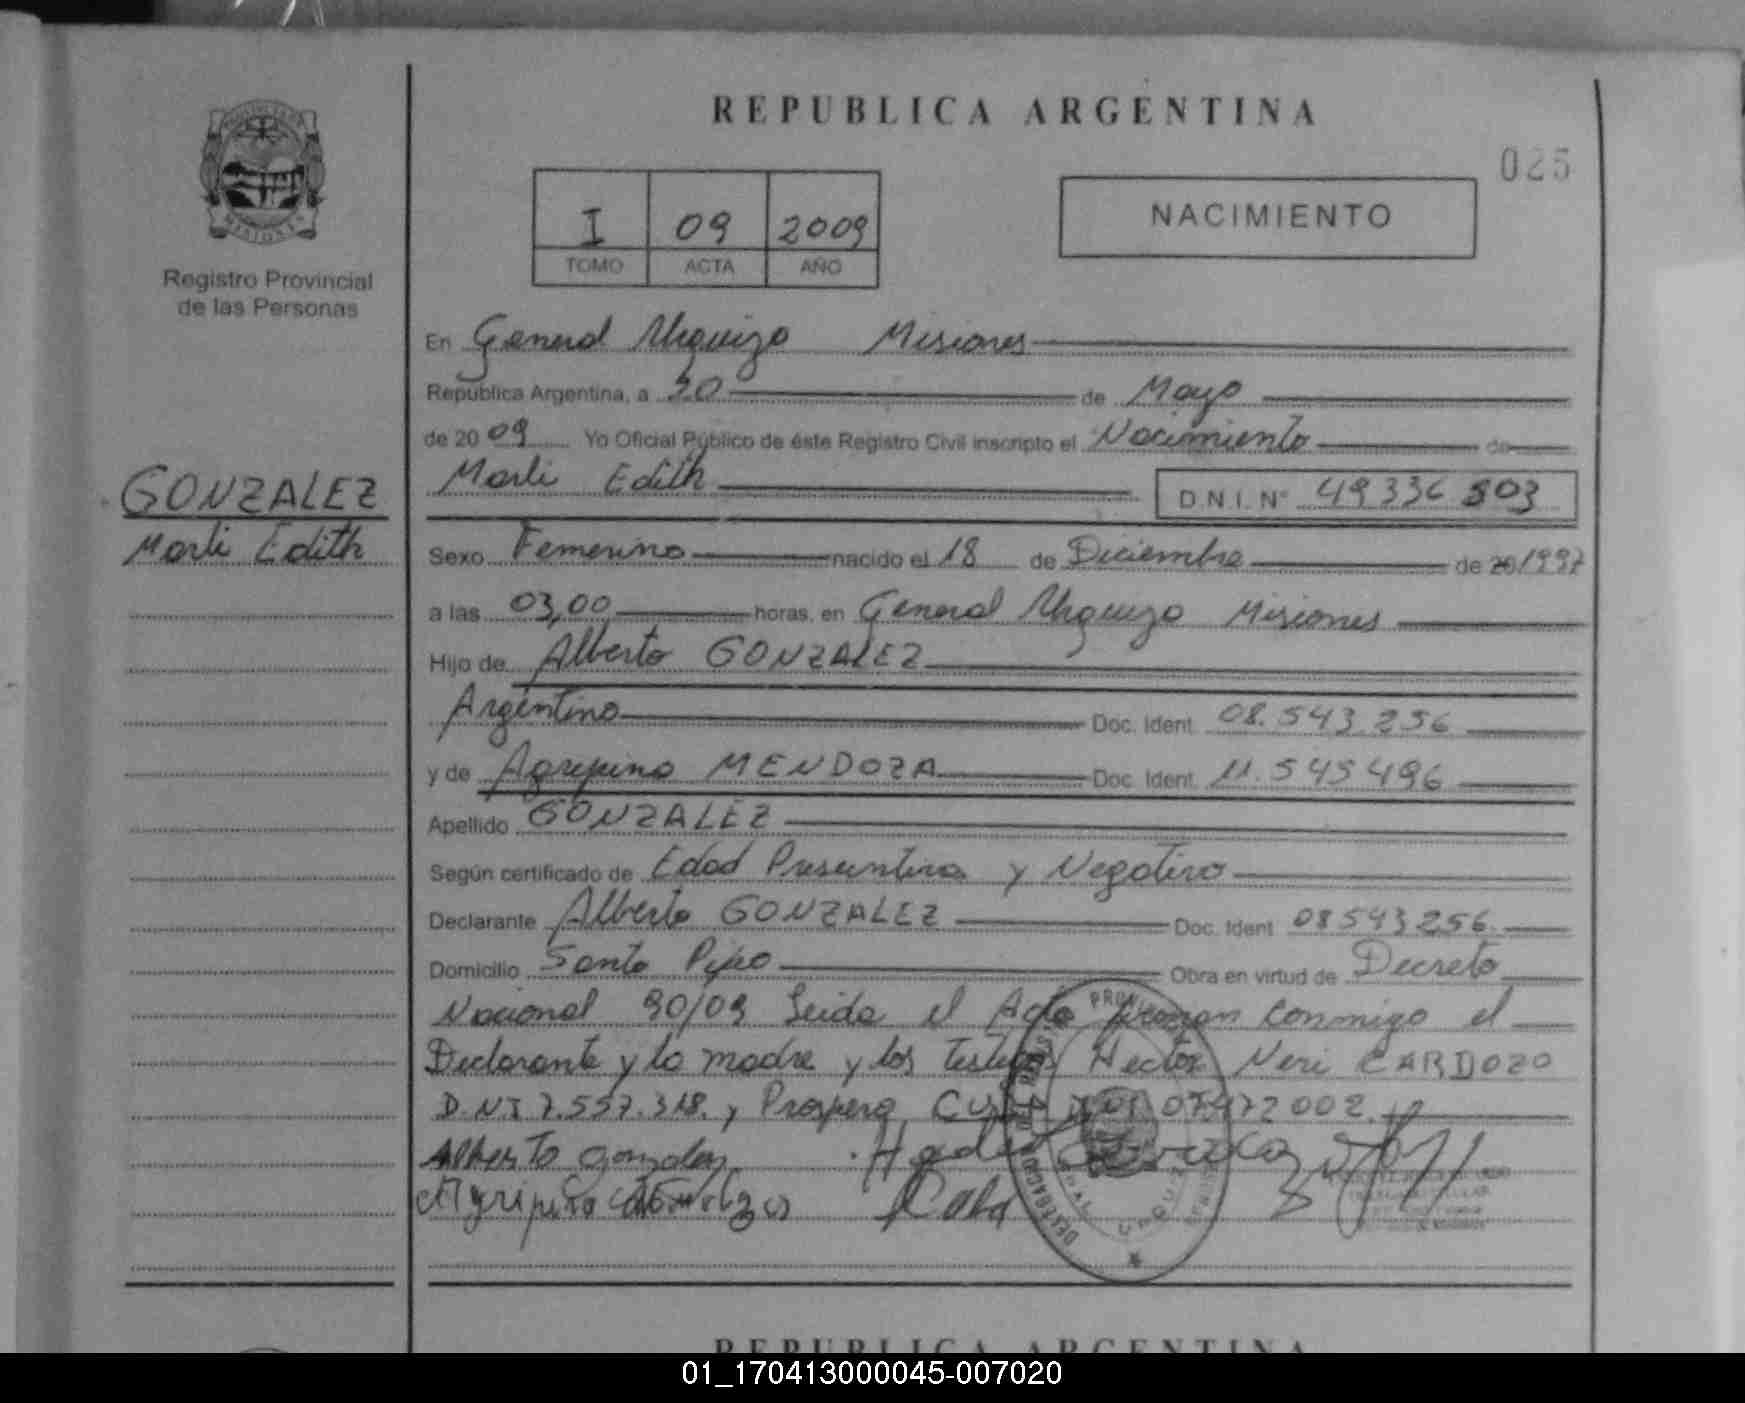 REPUBLICA ARGENTINA
025
I 09 2009
TOMO ACTA AÑO
NACIMIENTO
MISIONES
Registro Provincial
de las Personas
En General Urquiza Misiones
República Argentina, a 20 de Mayo
de 2009 Yo Oficial Público de éste Registro Civil inscripto el Nacimiento de
GONZALEZ
Marli Edith
Marli Edith
D.N.I. N° 49336 803
Sexo Femenino nacido el 18 de Diciembre de 20 1997
a las 03,00 horas, en General Urquiza Misiones
Hijo de Alberto GONZALEZ
Argentino Doc. Ident. 08.543.256
y de Agripina MENDOZA Doc. Ident. 11.545496
Apellido GONZALEZ
Según certificado de Edad Presuntiva y Negativo
Declarante Alberto GONZALEZ Doc. Ident 08543256
Domicilio Santo Pipo Obra en virtud de Decreto
Nacional 90/09 Leida el Acta firman conmigo el
Declarante y la madre y los testigos Hector Neri CARDOZO
D.N.I 7.557.318, Prospero 07472002.
Alberto gonzalez
REPUBLICA ARGENTINA
01_170413000045-007020